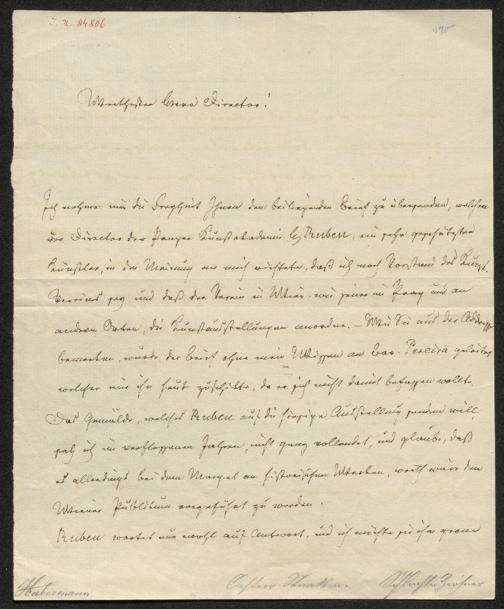 I. N. 84806
Werthester Herr Director!
Ich nehme mir die Freyheit Ihnen den beiliegenden Brief zu übersenden, welchen
der Director der Prager Kunstakademie H. Ruben, ein sehr geschätzter
Künstler, in der Meinung an mich richtete, daß ich noch Vorstand des Kunst-
Vereins sey, und daß der Verein in Wien wie jener in Prag und an
andern Orten, die Kunstausstellungen anordne. – Wie Sie aus der Addresse
bemerken, wurde der Brief ohne mein Wissen an Bar. Pereira geleitet,
welcher mir ihn heut zuschickte, da er sich nicht damit befassen wollte.
Das Gemälde, welches Ruben auf die hiesige Ausstellung senden will
sah ich im verflossenen Jahre, nicht ganz vollendet, und glaube, daß
es allerdings bei dem Mangel an historischen Werken, werth wäre dem
Wiener Publikum vorgeführt zu werden.
Ruben wartet nun wohl auf Antwort, und ich möchte sie ihm gerne
Habermann